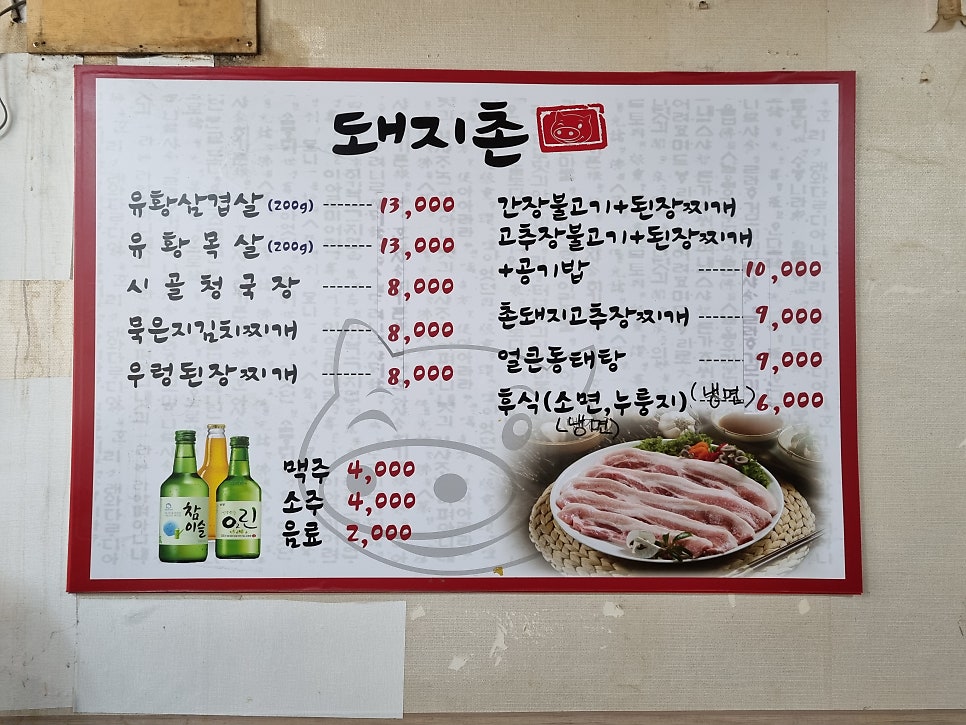 돼지촌
유황삼겹살(200g) ------- 13,000
유황목살(200g) ------- 13,000
시골청국장 ------- 8,000
묵은지김치찌개 ------- 8,000
우렁된장찌개 ------- 8,000
맥주 4,000
소주 4,000
음료 2,000
간장불고기+된장찌개
고추장불고기+된장찌개
+공기밥 ------ 10,000
촌돼지고추장찌개 ------ 9,000
얼큰동태탕 ------ 9,000
후식(소면,누룽지)(냉면) ------ 6,000
(냉면)
참이슬